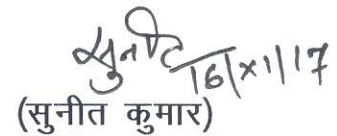 सुनीत
16/XI/17
(सुनीत कुमार)